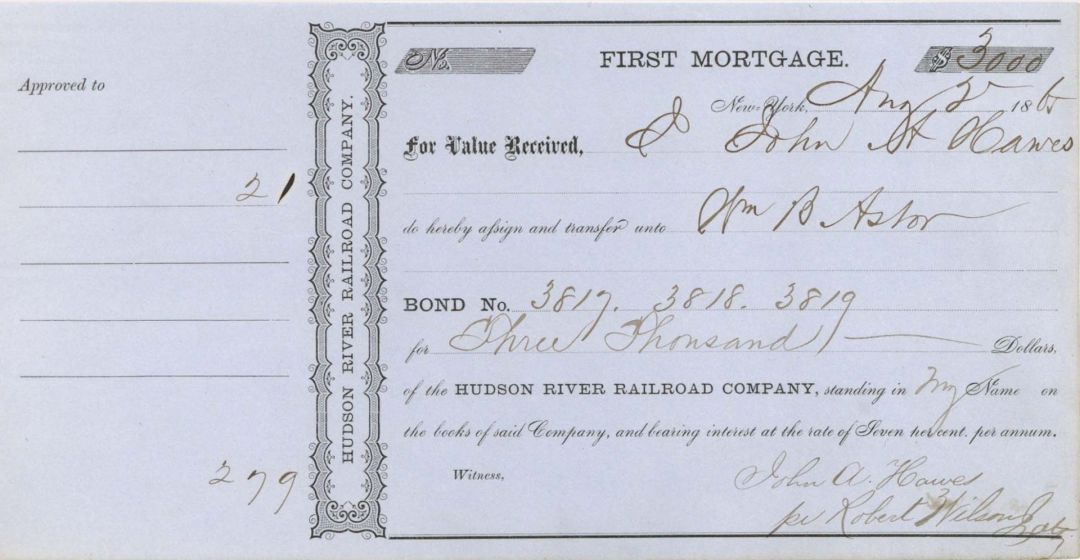 Approved to
21
279
HUDSON RIVER RAILROAD COMPANY.
No.
FIRST MORTGAGE.
$ 3000
New-York, Aug 2 1865
For Value Received, I John A Hawes
do hereby assign and transfer unto Wm B Astor
BOND No. 3817. 3818. 3819
for Three Thousand Dollars,
of the HUDSON RIVER RAILROAD COMPANY, standing in my Name on
the books of said Company, and bearing interest at the rate of Seven per cent. per annum.
Witness,
John A. Hawes
pr Robert Wilson